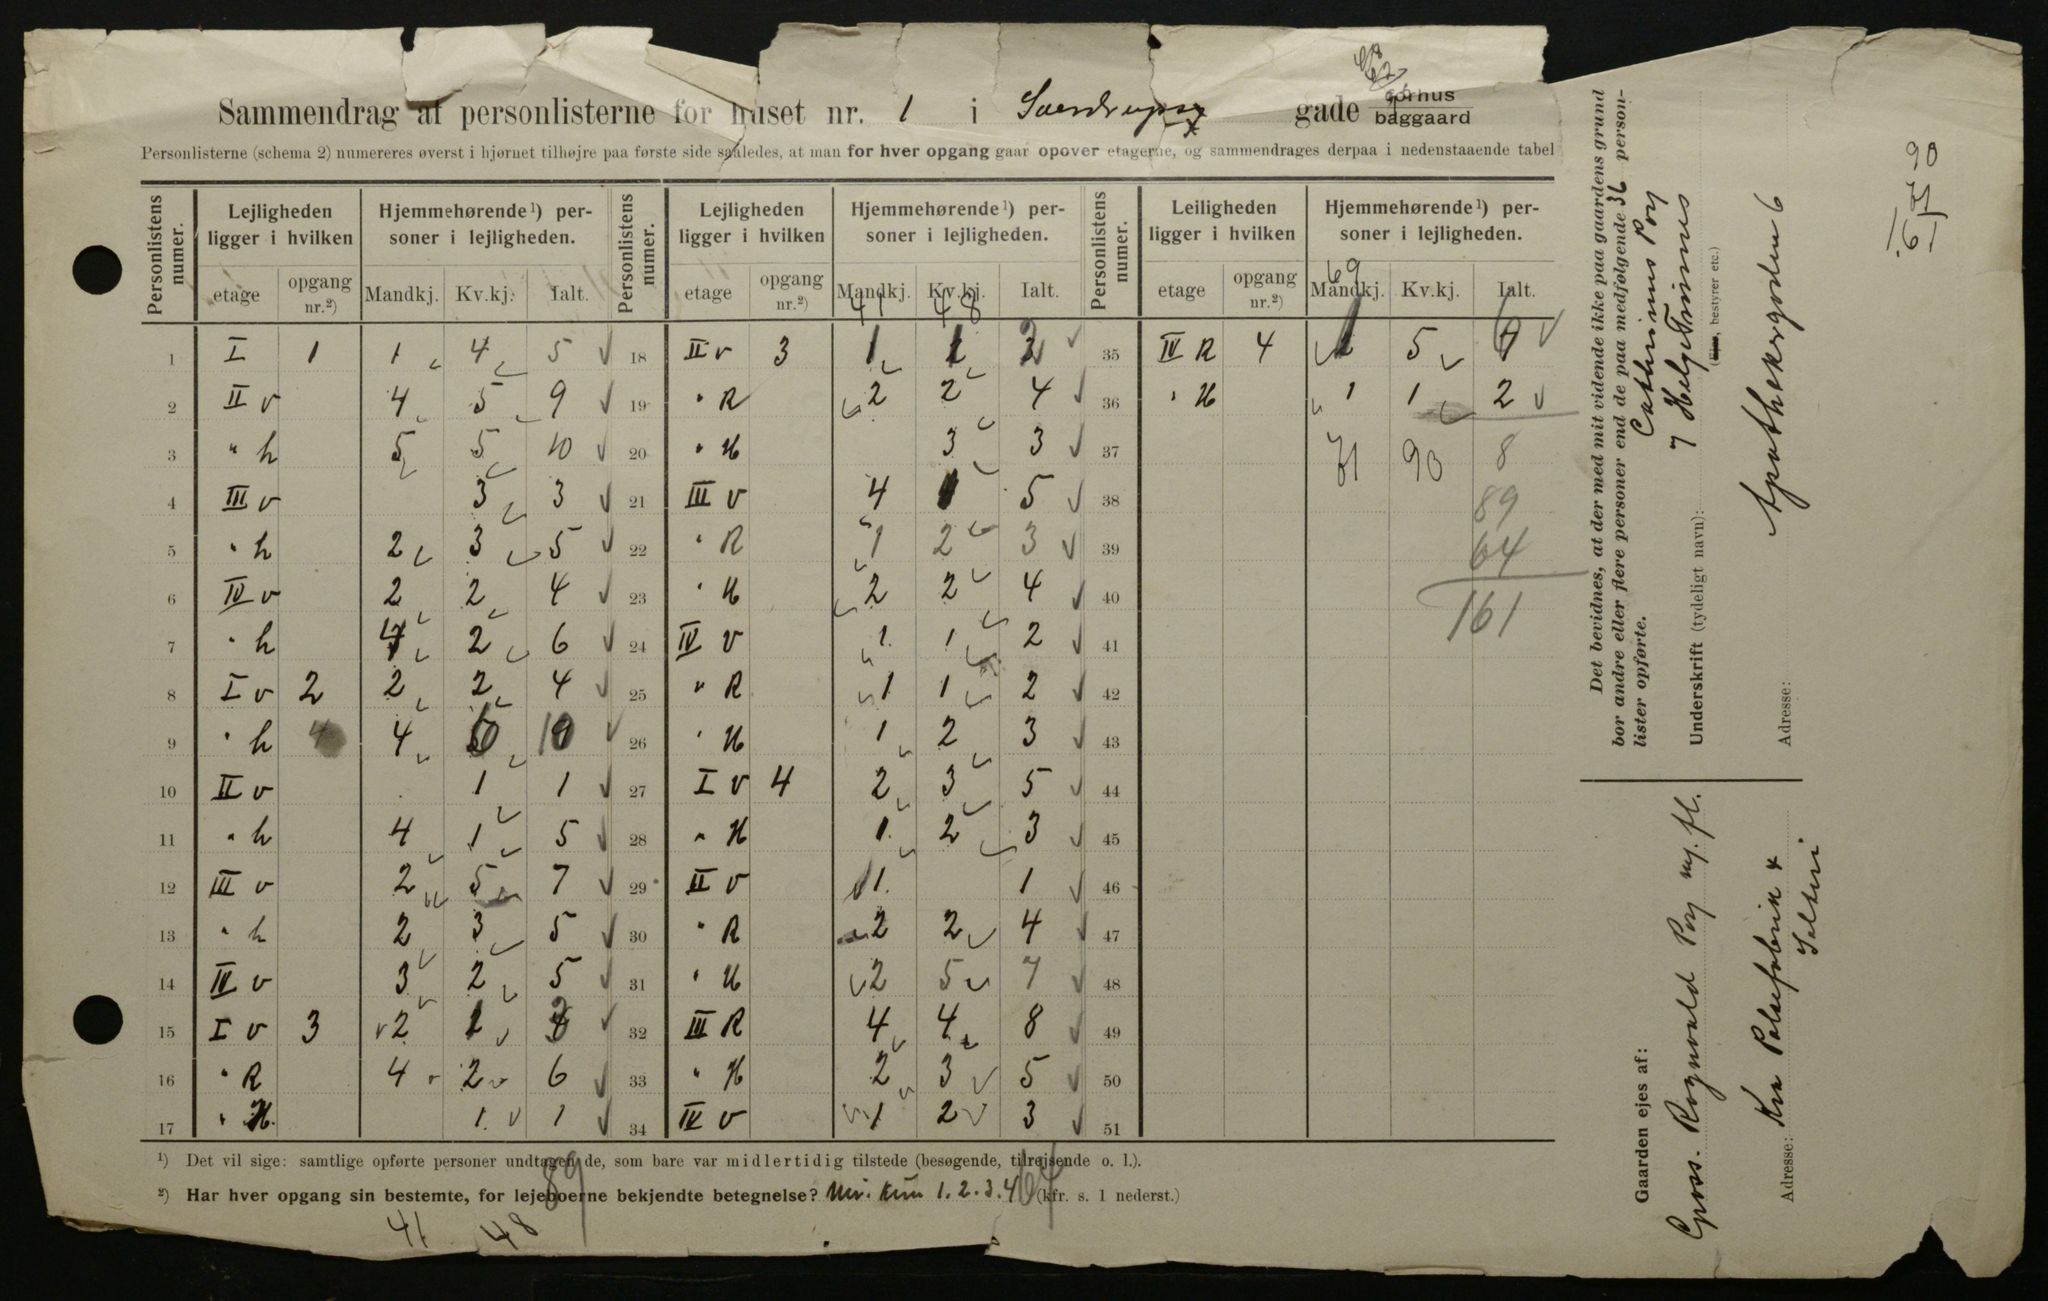 Sammendrag af personlisterne for huset nr. 1 i gade forhus baggaard
Personlisterne (schema 2) numereres øverst i hjørnet tilhøjre paa første side saaledes, at man for hver opgang gaar opover etagerne, og sammendrages derpaa i nedenstaaende tabel
Personlistens numer. Lejligheden ligger i hvilken Hjemmehørende¹) personer i lejligheden. Personlistens numer. Lejligheden ligger i hvilken Hjemmehørende¹) personer i lejligheden. Personlistens numer. Leiligheden ligger i hvilken Hjemmehørende¹) personer i lejligheden.
etage opgang nr.²) Mandkj. Kv.kj. Ialt. etage opgang nr.²) Mandkj. Kv.kj. Ialt. etage opgang nr.²) Mandkj. Kv.kj. Ialt.
41 48 69
1 I 1 1 4 5 18 II v 3 1 1 2 35 IV R 4 1 5 6
2 II v 4 5 9 19 " R 2 2 4 36 " H 1 1 2
3 " h 5 5 10 20 " H 3 3 37 71 90 8
4 III v 3 3 21 III v 4 1 5 38 89
5 " h 2 3 5 22 " R 1 2 3 39 64
6 IV v 2 2 4 23 " H 2 2 4 40 161
7 " h 4 2 6 24 IV v 1 1 2 41
8 I v 2 2 2 4 25 " R 1 1 2 42
9 " h 4 4 6 10 26 " H 1 2 3 43
10 II v 1 1 27 I v 4 2 3 5 44
11 " h 4 1 5 28 " H 1 2 3 45
12 III v 2 5 7 29 II v 1 1 46
13 " h 2 3 5 30 " R 2 2 4 47
14 IV v 3 2 5 31 " H 2 5 7 48
15 I v 3 2 1 3 32 III R 4 4 8 49
16 " R 4 2 6 33 " H 2 3 5 50
17 " H. 1 1 34 IV v 1 2 3 51
¹) Det vil sige: samtlige opførte personer undtagen de, som bare var midlertidig tilstede (besøgende, tilrejsende o. l.).
²) Har hver opgang sin bestemte, for lejeboerne bekjendte betegnelse? Nei. Kun 1.2.3.4 (kfr. s. 1 nederst.)
89 64
41 48
Det bevidnes, at der med mit vidende ikke paa gaardens grund
bor andre eller flere personer end de paa medfølgende 36 person-
lister opførte.
Underskrift (tydeligt navn):
(Ejer, bestyrer etc.)
Adresse: Apothekergaden 6
Gaarden ejes af:
Adresse:
90
71
161